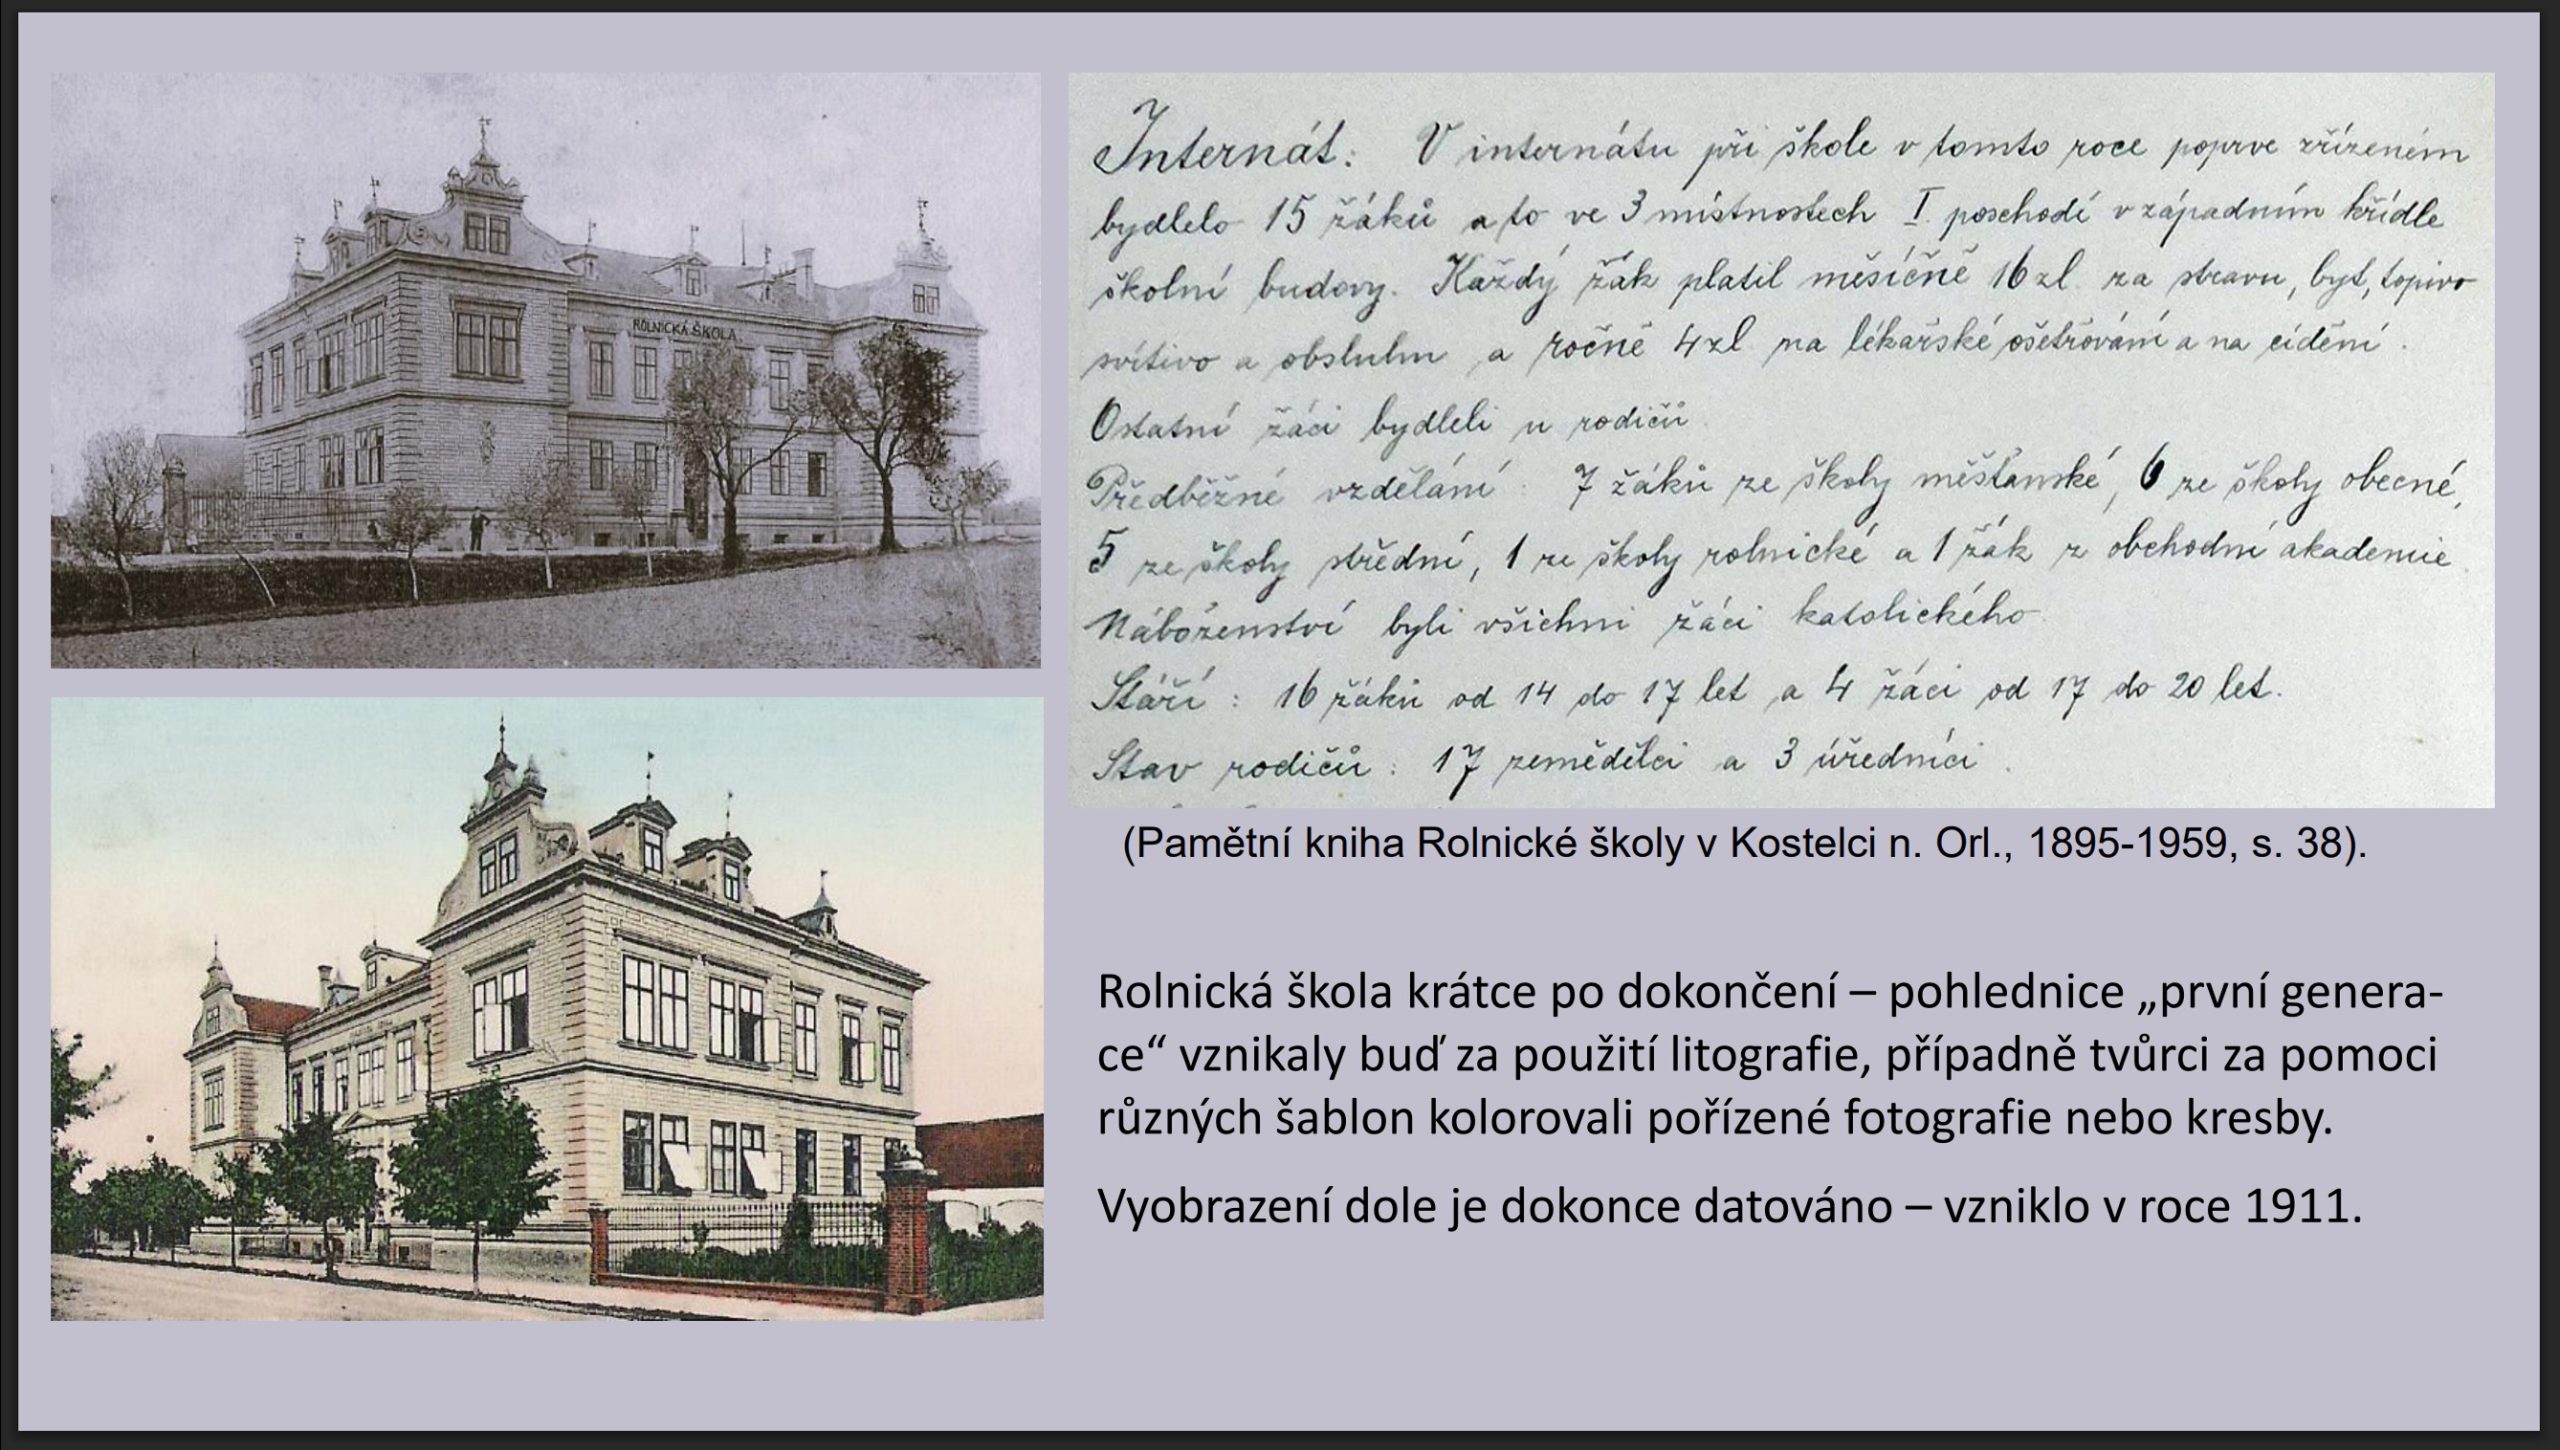 ROLNICKÁ ŠKOLA
Internát: V internátu při škole v tomto roce poprve zřízeném
bydlelo 15 žáků a to ve 3 místnostech I. poschodí v západním křídle
školní budovy. Každý žák platil měsíčně 16 zl. za stravu, byt, topivo
svítivo a obsluhu a ročně 4 zl na lékařské ošetřování a na cídění.
Ostatní žáci bydleli u rodičů
Předběžné vzdělání: 7 žáků ze školy měšťanské, 6 ze školy obecné,
5 ze školy střední, 1 ze školy rolnické a 1 žák z obchodní akademie
Náboženství byli všichni žáci katolického
Stáří: 16 žáků od 14 do 17 let a 4 žáci od 17 do 20 let.
Stav rodičů: 17 zemědělci a 3 úředníci.
(Pamětní kniha Rolnické školy v Kostelci n. Orl., 1895-1959, s. 38).
Rolnická škola krátce po dokončení – pohlednice „první genera-
ce“ vznikaly buď za použití litografie, případně tvůrci za pomoci
různých šablon kolorovali pořízené fotografie nebo kresby.
Vyobrazení dole je dokonce datováno – vzniklo v roce 1911.